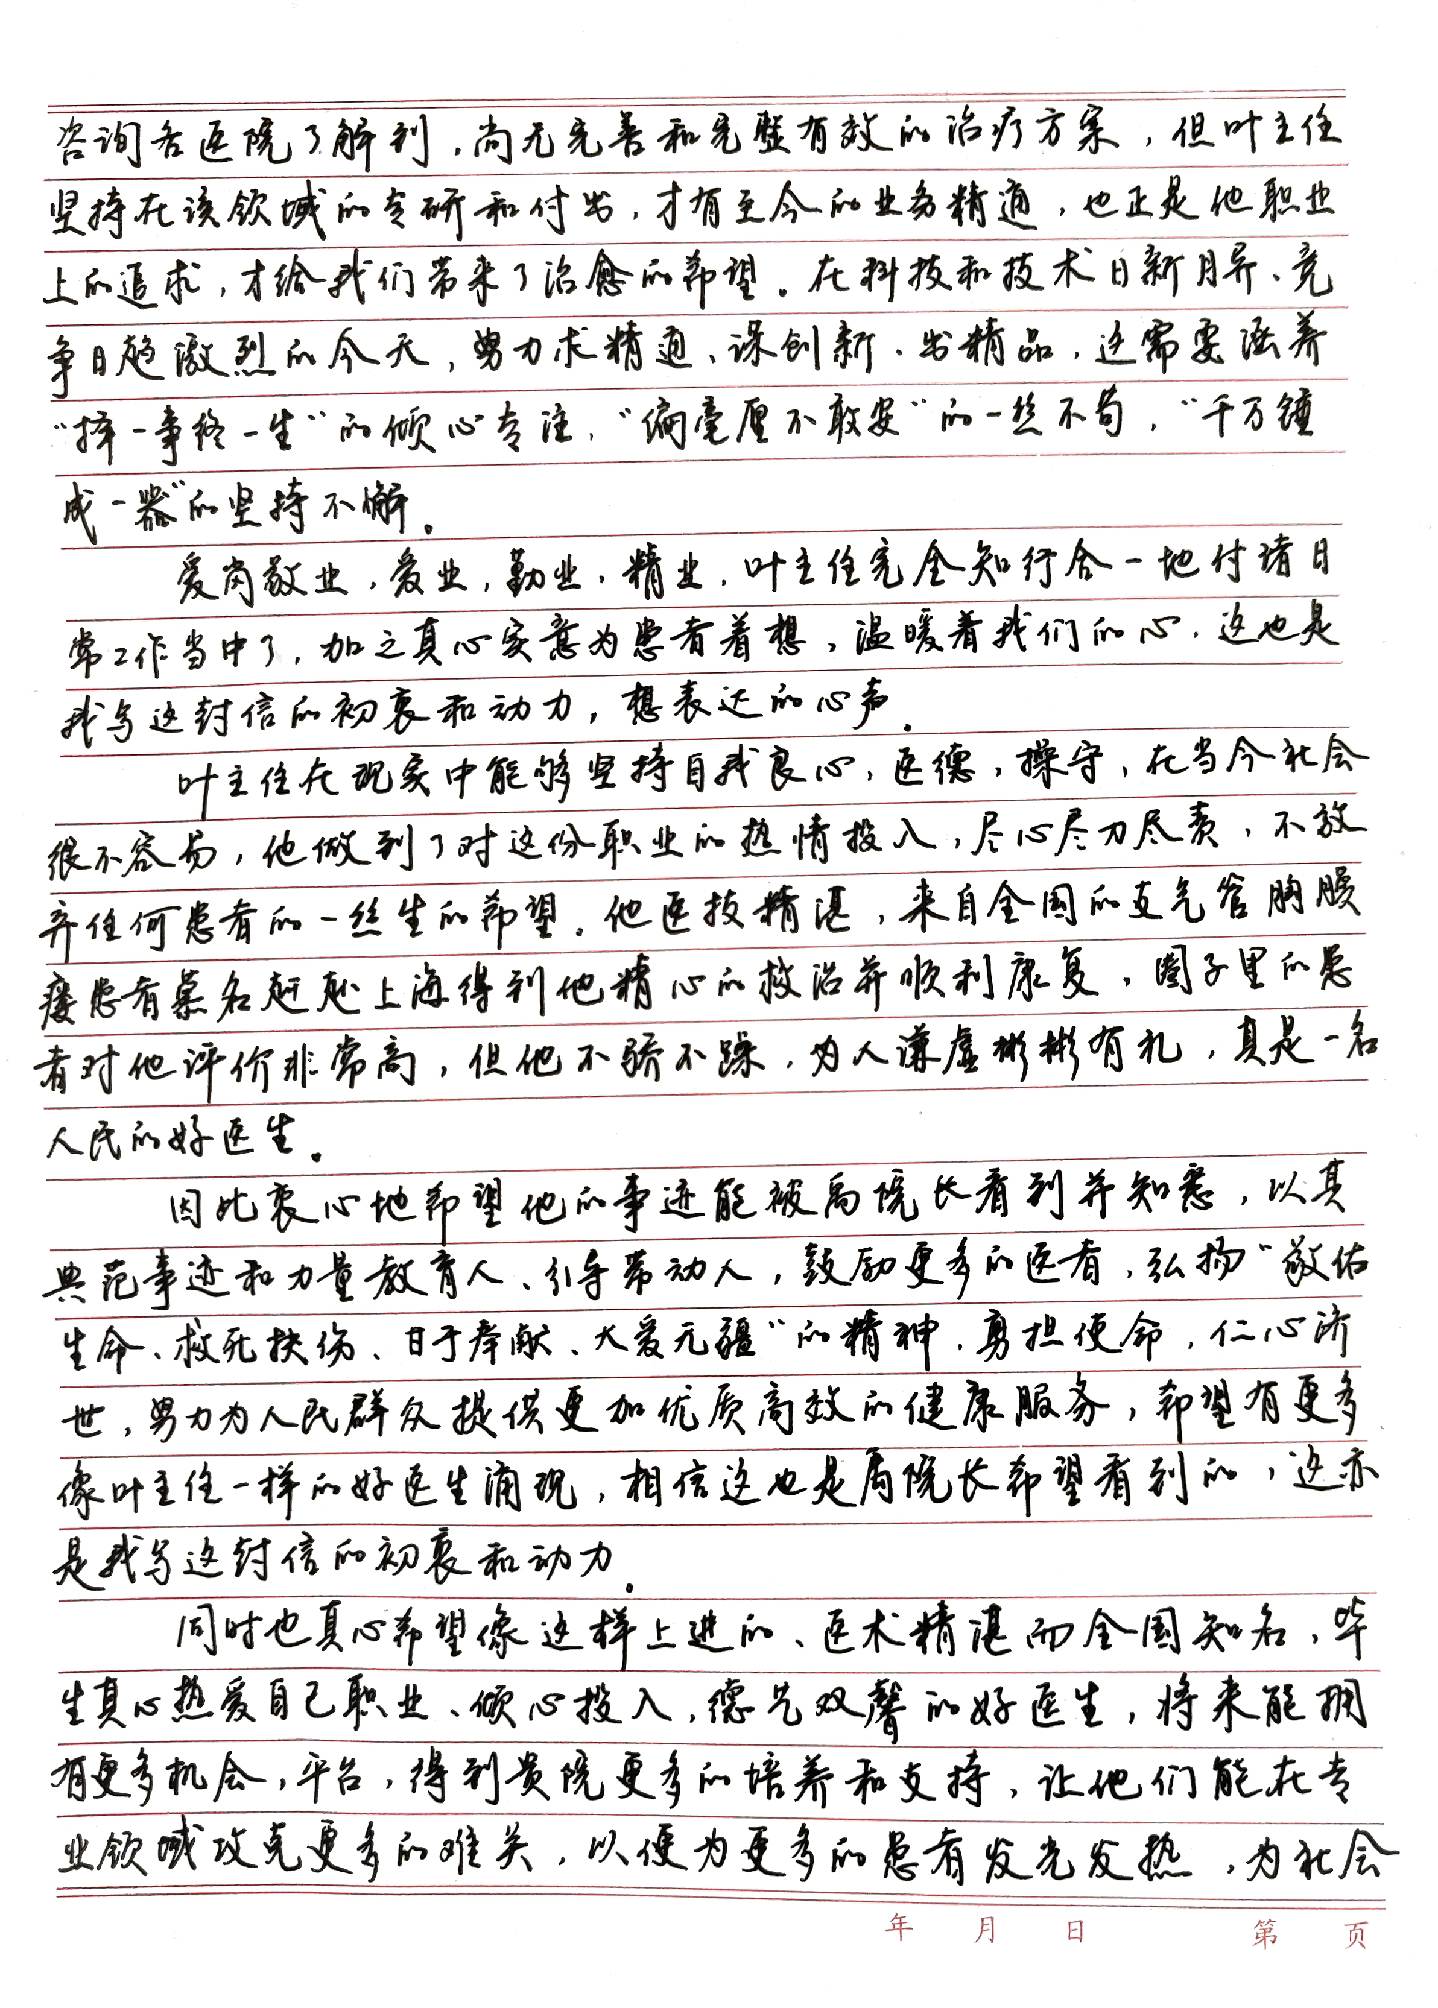 咨询各医院了解到，尚无完善和完整有效的治疗方案，但叶主任
坚持在该领域的专研和付出，才有至今的业务精通，也正是他职业
上的追求，才给我们带来了治愈的希望。在科技和技术日新月异、竞
争日趋激烈的今天，努力求精通、谋创新、出精品，这需要涵养
“择一事终一生”的倾心专注，“偏毫厘不敢安”的一丝不苟，“千万锤
成一器”的坚持不懈。
爱岗敬业，爱业，勤业，精业，叶主任完全知行合一地付诸日
常工作当中了，加之真心实意为患者着想，温暖着我们的心，这也是
我写这封信的初衷和动力，想表达的心声。
叶主任在现实中能够坚持自我良心，医德，操守，在当今社会
很不容易，他做到了对这份职业的热情投入，尽心尽力尽责，不放
弃任何患者的一丝生的希望。他医技精湛，来自全国的支气管胸膜
瘘患者慕名赶赴上海得到他精心的救治并顺利康复，圈子里的患
者对他评价非常高，但他不骄不躁，为人谦虚彬彬有礼，真是一名
人民的好医生。
因此衷心地希望他的事迹能被周院长看到并知悉，以其
典范事迹和力量教育人、引导带动人，鼓励更多的医者，弘扬“敬佑
生命、救死扶伤、甘于奉献、大爱无疆”的精神，勇担使命，仁心济
世，努力为人民群众提供更加优质高效的健康服务，希望有更多
像叶主任一样的好医生涌现，相信这也是周院长希望看到的，这亦
是我写这封信的初衷和动力。
同时也真心希望像这样上进的、医术精湛而全国知名，毕
生真心热爱自己职业、倾心投入，德艺双馨的好医生，将来能拥
有更多机会，平台，得到贵院更多的培养和支持，让他们能在专
业领域攻克更多的难关，以便为更多的患者发光发热，为社会
年 月 日 第 页